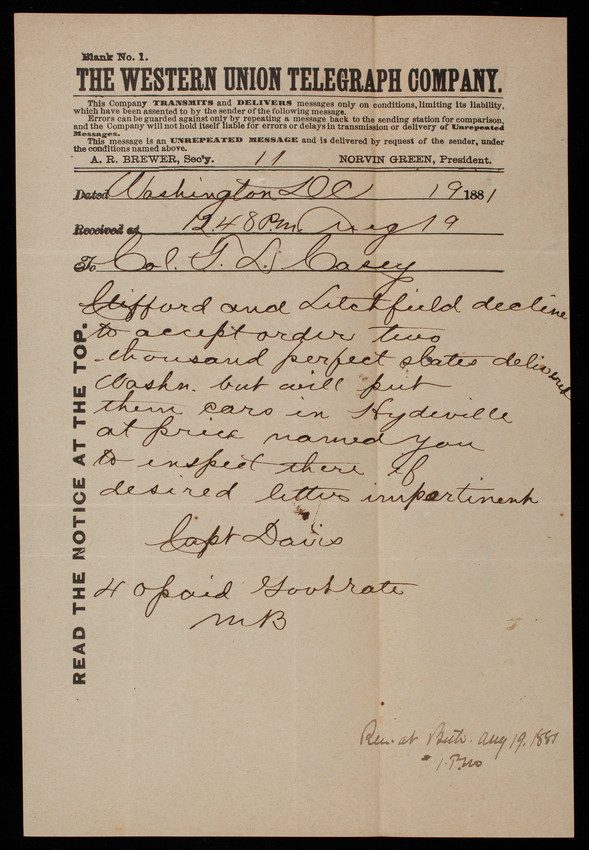 Blank No. 1.
THE WESTERN UNION TELEGRAPH COMPANY.
This Company TRANSMITS and DELIVERS messages only on conditions, limiting its liability,
which have been assented to by the sender of the following message.
Errors can be guarded against only by repeating a message back to the sending station for comparison,
and the Company will not hold itself liable for errors or delays in transmission or delivery of Unrepeated
Messages.
This message is an UNREPEATED MESSAGE and is delivered by request of the sender, under
the conditions named above.
A. R. BREWER, Sec'y. 11 NORVIN GREEN, President.
Dated Washington DC 19 1881
Received at 12.48 P.m. Aug 19
To Col. T. L. Casey
Clifford and Litchfield decline
to accept order two
thousand perfect slates delivered
Washn. but will put
them cars in Hydeville
at price named you
to inspect there if
desired letter impertinent
Capt Davis
40 paid Govt rate
MB
READ THE NOTICE AT THE TOP.
at Aug 19. 1881